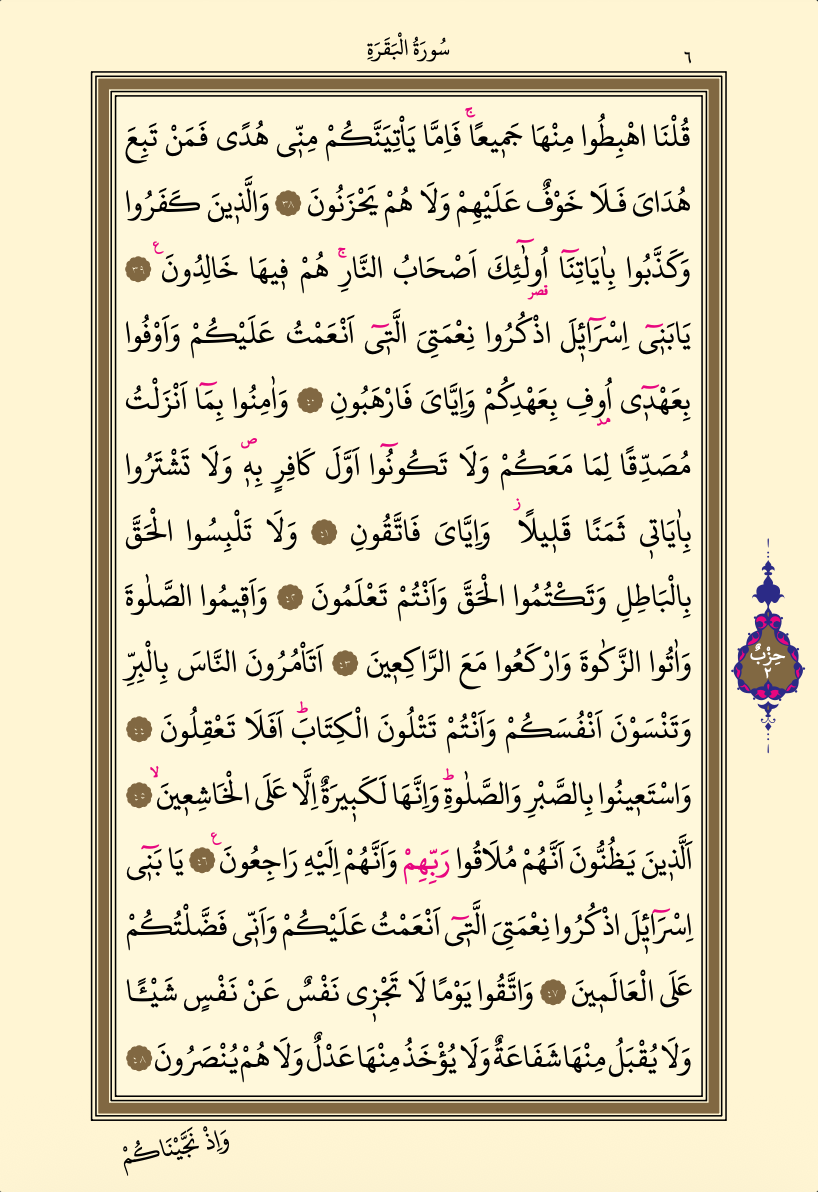 ٦
سُورَةُ الْبَقَرَةِ
قُلْنَا اهْبِطُوا مِنْهَا جَمٖيعًاۚ فَاِمَّا يَاْتِيَنَّكُمْ مِنّٖى هُدًى فَمَنْ تَبِعَ
هُدَاىَ فَلَا خَوْفٌ عَلَيْهِمْ وَلَا هُمْ يَحْزَنُونَ ٣٨ وَالَّذٖينَ كَفَرُوا
وَكَذَّبُوا بِاٰيَاتِنَٓا اُولٰٓئِكَ اَصْحَابُ النَّارِۚ هُمْ فٖيهَا خَالِدُونَࣖ ٣٩
قصر
يَابَنٖٓى اِسْرَٓائٖلَ اذْكُرُوا نِعْمَتِىَ الَّتٖٓى اَنْعَمْتُ عَلَيْكُمْ وَاَوْفُوا
بِعَهْدٖٓى اُوفِ بِعَهْدِكُمْ وَاِيَّاىَ فَارْهَبُونِ ٤٠ وَاٰمِنُوا بِمَٓا اَنْزَلْتُ
مد
مُصَدِّقًا لِمَا مَعَكُمْ وَلَا تَكُونُٓوا اَوَّلَ كَافِرٍ بِهٖࣕ وَلَا تَشْتَرُوا
بِاٰيَاتٖى ثَمَنًا قَلٖيلًاؗ وَاِيَّاىَ فَاتَّقُونِ ٤١ وَلَا تَلْبِسُوا الْحَقَّ
بِالْبَاطِلِ وَتَكْتُمُوا الْحَقَّ وَاَنْتُمْ تَعْلَمُونَ ٤٢ وَاَقٖيمُوا الصَّلٰوةَ
وَاٰتُوا الزَّكٰوةَ وَارْكَعُوا مَعَ الرَّاكِعٖينَ ٤٣ اَتَاْمُرُونَ النَّاسَ بِالْبِرِّ
وَتَنْسَوْنَ اَنْفُسَكُمْ وَاَنْتُمْ تَتْلُونَ الْكِتَابَؕ اَفَلَا تَعْقِلُونَ ٤٤
وَاسْتَعٖينُوا بِالصَّبْرِ وَالصَّلٰوةِؕ وَاِنَّهَا لَكَبٖيرَةٌ اِلَّا عَلَى الْخَاشِعٖينَۙ ٤٥
اَلَّذٖينَ يَظُنُّونَ اَنَّهُمْ مُلَاقُوا رَبِّهِمْ وَاَنَّهُمْ اِلَيْهِ رَاجِعُونَࣖ ٤٦ يَا بَنٖٓى
اِسْرَٓائٖلَ اذْكُرُوا نِعْمَتِىَ الَّتٖٓى اَنْعَمْتُ عَلَيْكُمْ وَاَنّٖى فَضَّلْتُكُمْ
عَلَى الْعَالَمٖينَ ٤٧ وَاتَّقُوا يَوْمًا لَا تَجْزٖى نَفْسٌ عَنْ نَفْسٍ شَيْـًٔا
وَلَا يُقْبَلُ مِنْهَا شَفَاعَةٌ وَلَا يُؤْخَذُ مِنْهَا عَدْلٌ وَلَا هُمْ يُنْصَرُونَ ٤٨
حِزْبٌ
٢
وَاِذْ نَجَّيْنَاكُمْ